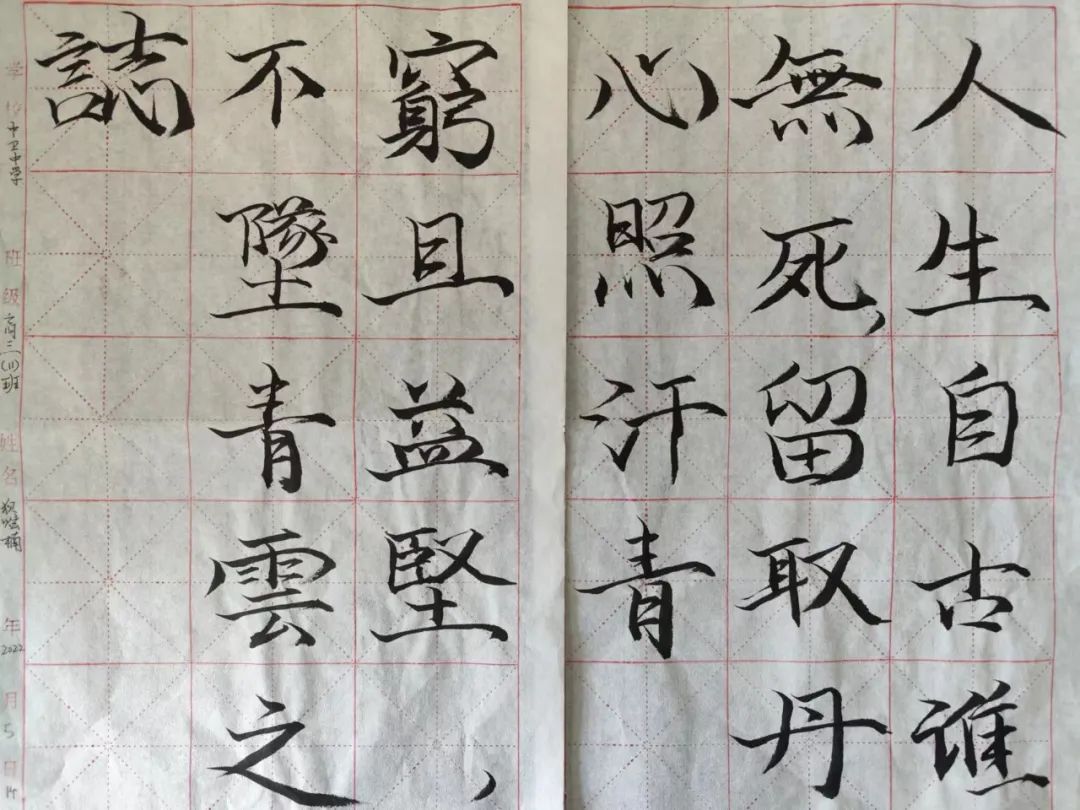 人生自古谁
無死,留取丹
心照汗青
窮且益堅,
不墜青雲之
誌
学校 中卫中学 班级 高三(11)班 姓名 年 2022 月 5 日 14